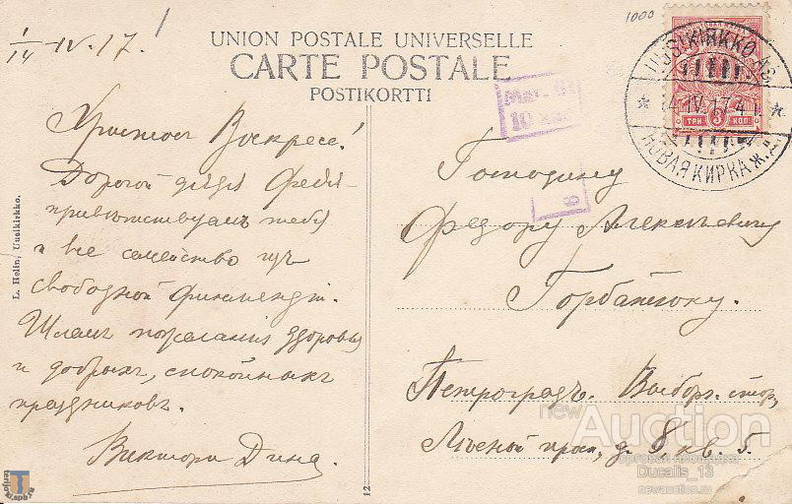 1/14 IV. 17.
1000
UNION POSTALE UNIVERSELLE
CARTE POSTALE
POSTIKORTTI
UUSIKIRKKO AS.
14.IV.17
НОВАЯ КИРКА Ж.Д.
ТРИ 3 КОП.
Христосъ Воскресе!
Дорогой дядя Федя
привѣтствуемъ тебя
и все семейство изъ
свободной Финляндіи.
Шлемъ пожеланія здоровья
и добрыхъ, спокойныхъ
праздниковъ.
Викторъ Дина.
Господину
Федору Алексѣевичу
Горбатюку.
Петроградъ. Выборг. стор.
Лѣсной просп., д. 8, кв. 5.
L. Holin, Uusikirkko.
12
6
newAuction
Ducalis_13
newauction.ru
terijoki